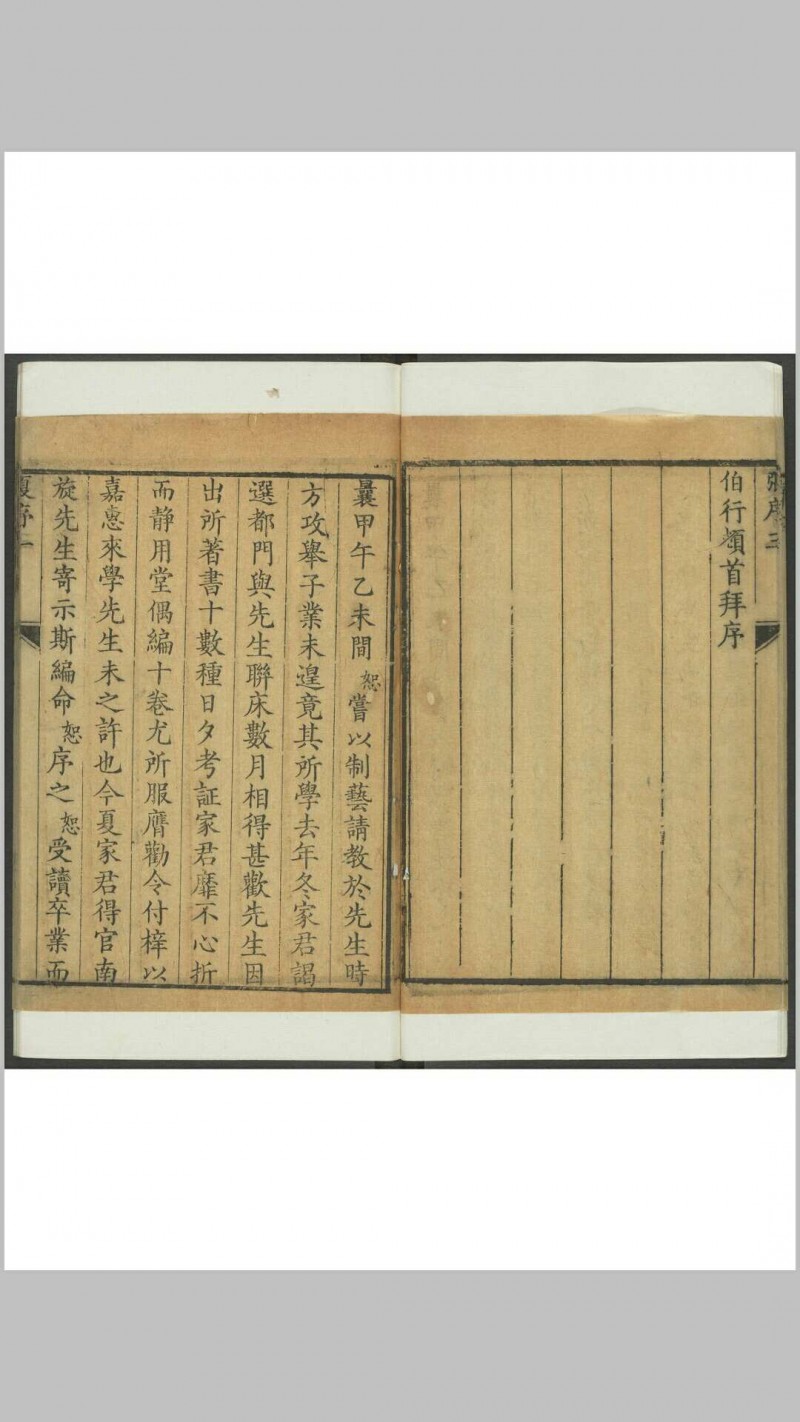 伯行頫首拜序
曩甲午乙未間恕嘗以制藝請教於先生時
方攻舉子業未遑竟其所學去年冬家君謁
選都門與先生聯床數月相得甚歡先生因
出所著書十數種日夕考証家君靡不心折
而静用堂偶編十卷尤所服膺勸令付梓以
嘉惠來學先生未之許也今夏家君得官南
旋先生寄示斯編命恕序之恕受讀卒業而